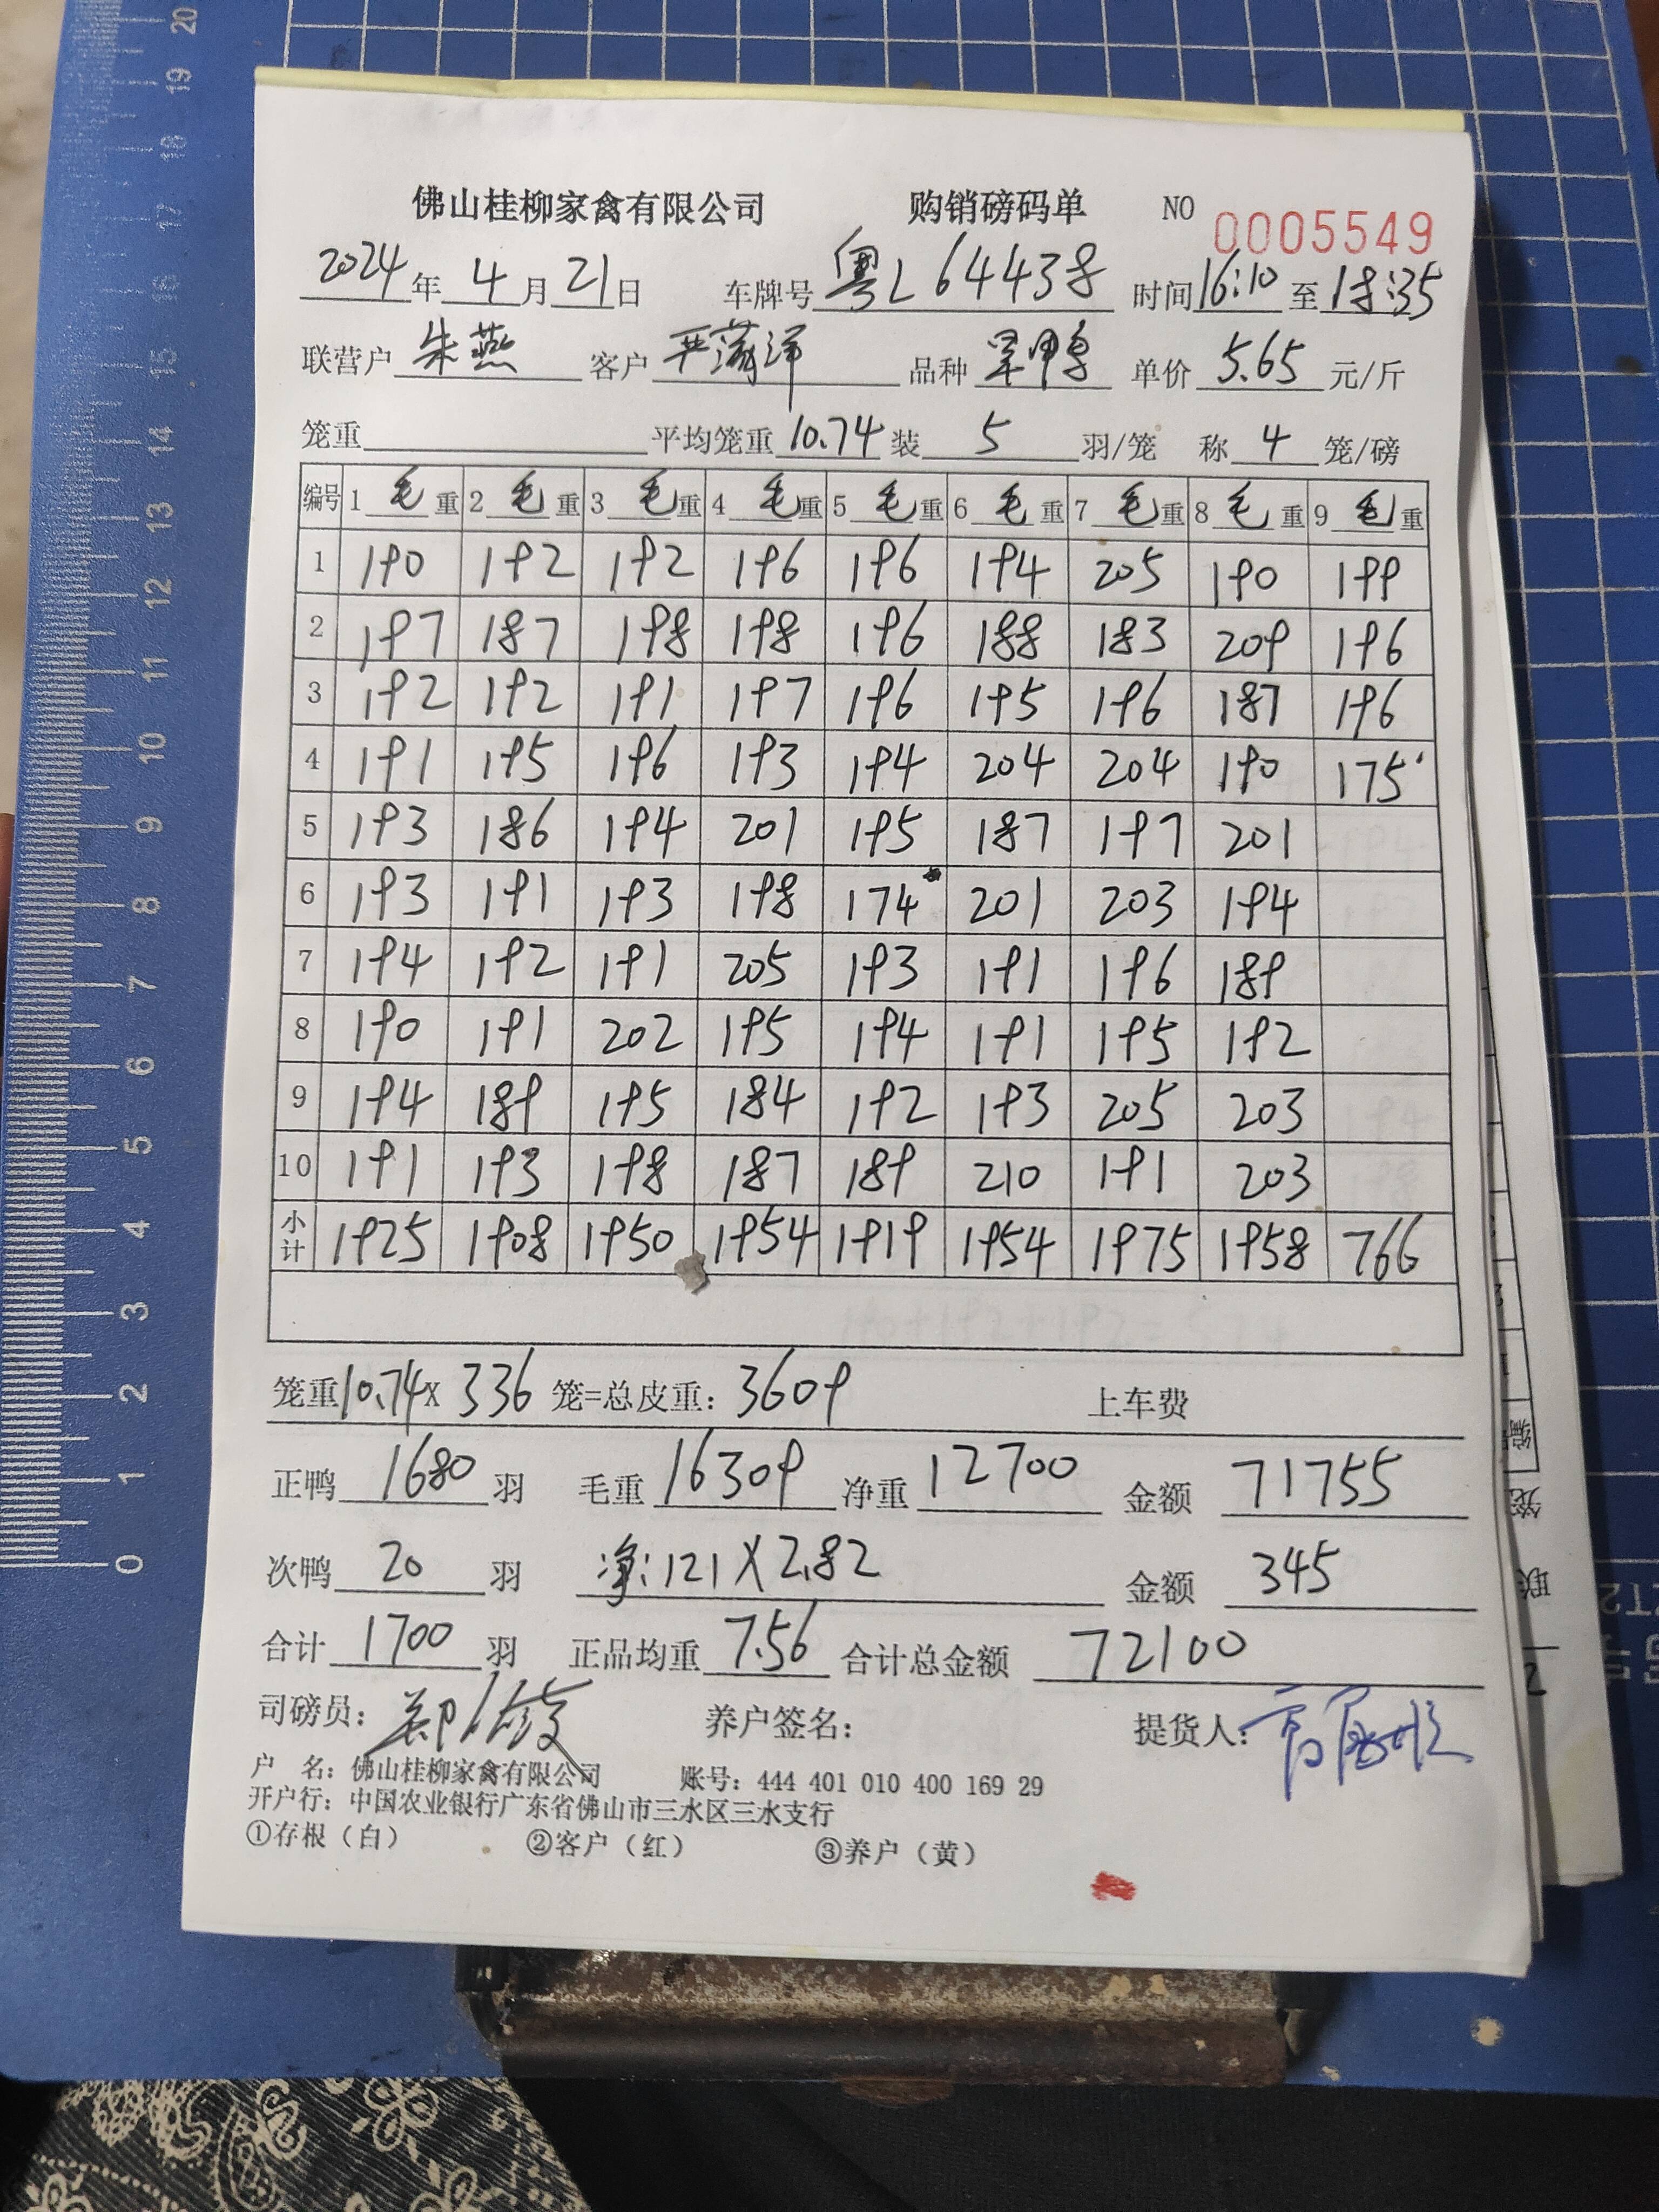 佛山桂柳家禽有限公司 购销磅码单 NO 0005549
2024年4月21日 车牌号 粤L64438 时间16:10至18:35
联营户 朱燕 客户 严蒲洋 品种 单价 5.65 元/斤
笼重 平均笼重 10.74 装 5 羽/笼 称 4 笼/磅
编号 1 毛 重 2 毛 重 3 毛 重 4 毛 重 5 毛 重 6 毛 重 7 毛 重 8 毛 重 9 毛 重
1 190 192 192 196 196 194 205 190 199
2 197 187 198 198 196 188 183 209 196
3 192 192 191 197 196 195 196 187 196
4 191 195 196 193 194 204 204 190 175
5 193 186 194 201 195 187 197 201
6 193 191 193 198 174 201 203 194
7 194 192 191 205 193 191 196 189
8 190 191 202 195 194 191 195 192
9 194 189 195 184 192 193 205 203
10 191 193 198 187 189 210 191 203
小计 1925 1908 1950 1954 1919 1954 1975 1958 766
笼重10.74X 336 笼=总皮重: 3609 上车费
正鸭 1680 羽 毛重 16309 净重 12700 金额 71755
次鸭 20 羽 净:121X2.82 金额 345
合计 1700 羽 正品均重 7.56 合计总金额 72100
司磅员: 养户签名: 提货人:
户 名: 佛山桂柳家禽有限公司 账号: 444 401 010 400 169 29
开户行: 中国农业银行广东省佛山市三水区三水支行
①存根（白） ②客户（红） ③养户（黄）
20
19
18
17
16
15
14
13
12
11
10
9
8
7
6
5
4
3
2
1
0